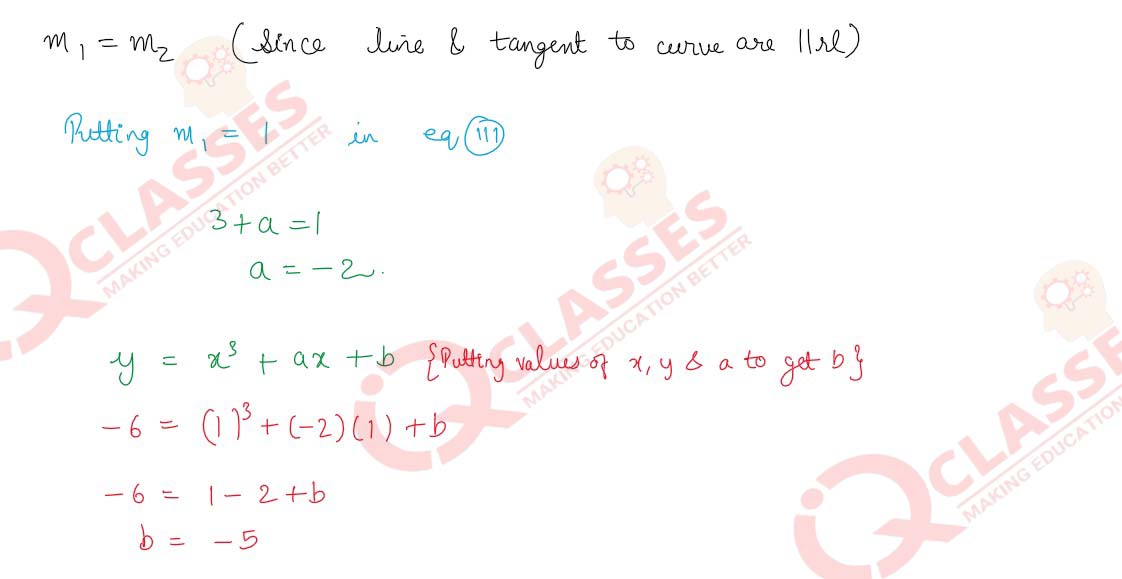 m₁ = m₂ (Since line & tangent to curve are ||rl)
Putting m₁ = 1 in eq (111)
3 + a = 1
a = -2.
y = x³ + ax + b {Putting values of x, y & a to get b}
-6 = (1)³ + (-2)(1) + b
-6 = 1 - 2 + b
b = -5
CLASSES
MAKING EDUCATION BETTER
CLASSES
MAKING EDUCATION BETTER
CLASSES
MAKING EDUCATION